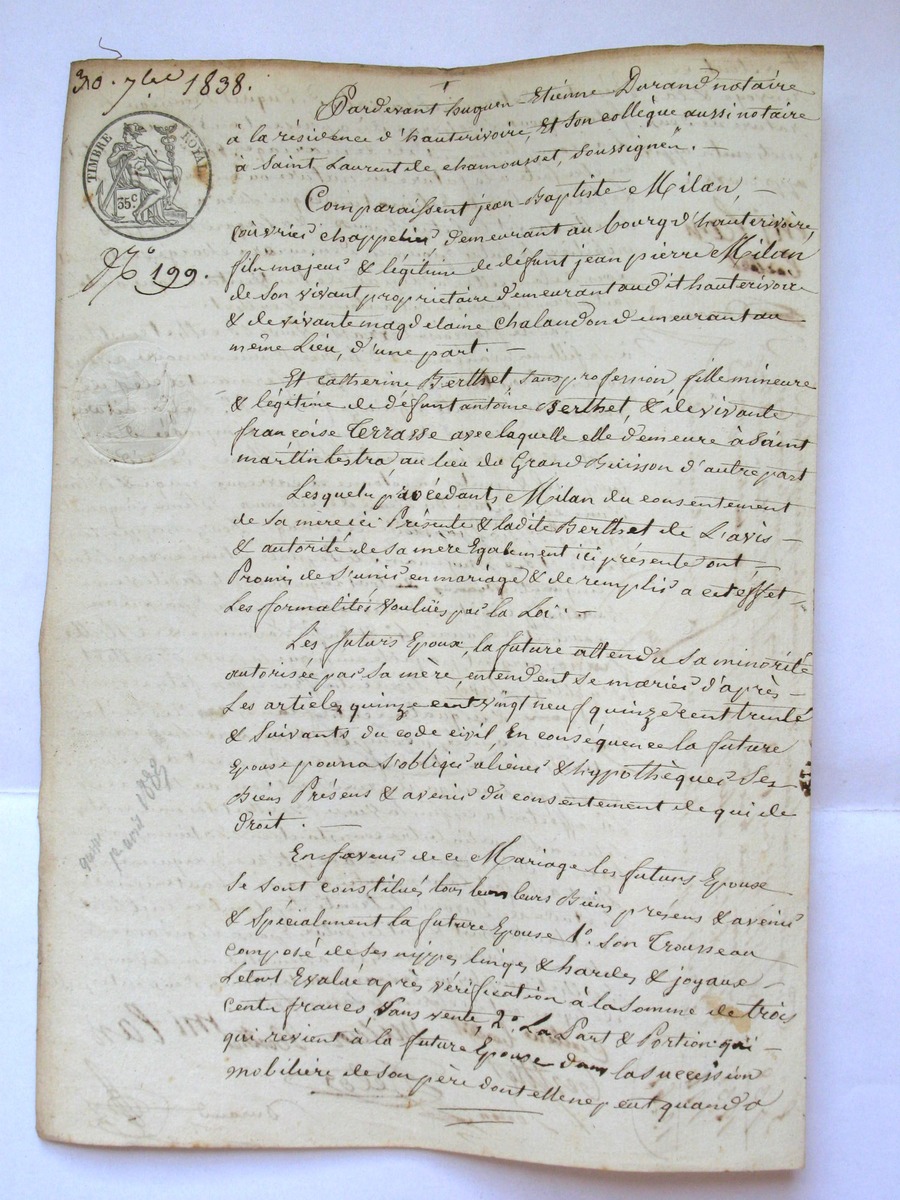 30. 7bre 1838.
TIMBRE ROYAL
35c
N° 199.
Pardevant hugues Etiénne Durand notaire
à la résidence d'hauterivoire, Et son collègue aussi notaire
à Saint Laurent de chamousset, soussignés. —
Comparaissent jean Baptiste Milan, —
ouvrier chappelier, demeurant au bourg d'hauterivoire,
fils majeur & légitime de defunt jean pierre Milan
de son vivant propriétaire demeurant audit hauterivoire
& de vivante magdelaine Chalandon demeurant au
même Lieu, d'une part. —
Et catherine Berthet, sans profession fille mineure
& légitime de défunt antoine Berthet, & de vivante
françoise Terrasse avec laquelle elle demeure à Saint
martin lestra, au lieu du Grand Buisson d'autre part
Lesquels procédants Milan du consentement
de Sa mère ici Présente & ladite Berthet de L'avis —
& autorité de Sa mère Egalement ici présente ont —
Promis de S'unir en mariage & de remplir a cet effet —
Les formalités voulues par la Loi. —
Les futurs Epoux, la future attendu sa minorité
autorisée par Sa mère, entendent se marier d'après —
Les articles quinze cent vingt neuf quinze cent trente
& Suivants du code civil, En conséquence la future
Epouse pourra s'obliger aliéner & hypothèquer Ses
Biens Présens & avenir du consentement de qui de
droit. —
En faveur de ce Mariage les futurs Epoux
Se sont constitués tous leurs Biens présens & avenir
& spécialement la future Epouse 1°. Son Trousseau
composé de Ses nippes linges & hardes & joyaux
Letout Evalué après vérification à la Somme de trois
cents francs, Sans vente, 2°. La Part & Portion qui —
qui revient à la future Epouse dans la succession
mobiliere de Son père dont elle ne peut quand a
1er avril 1885